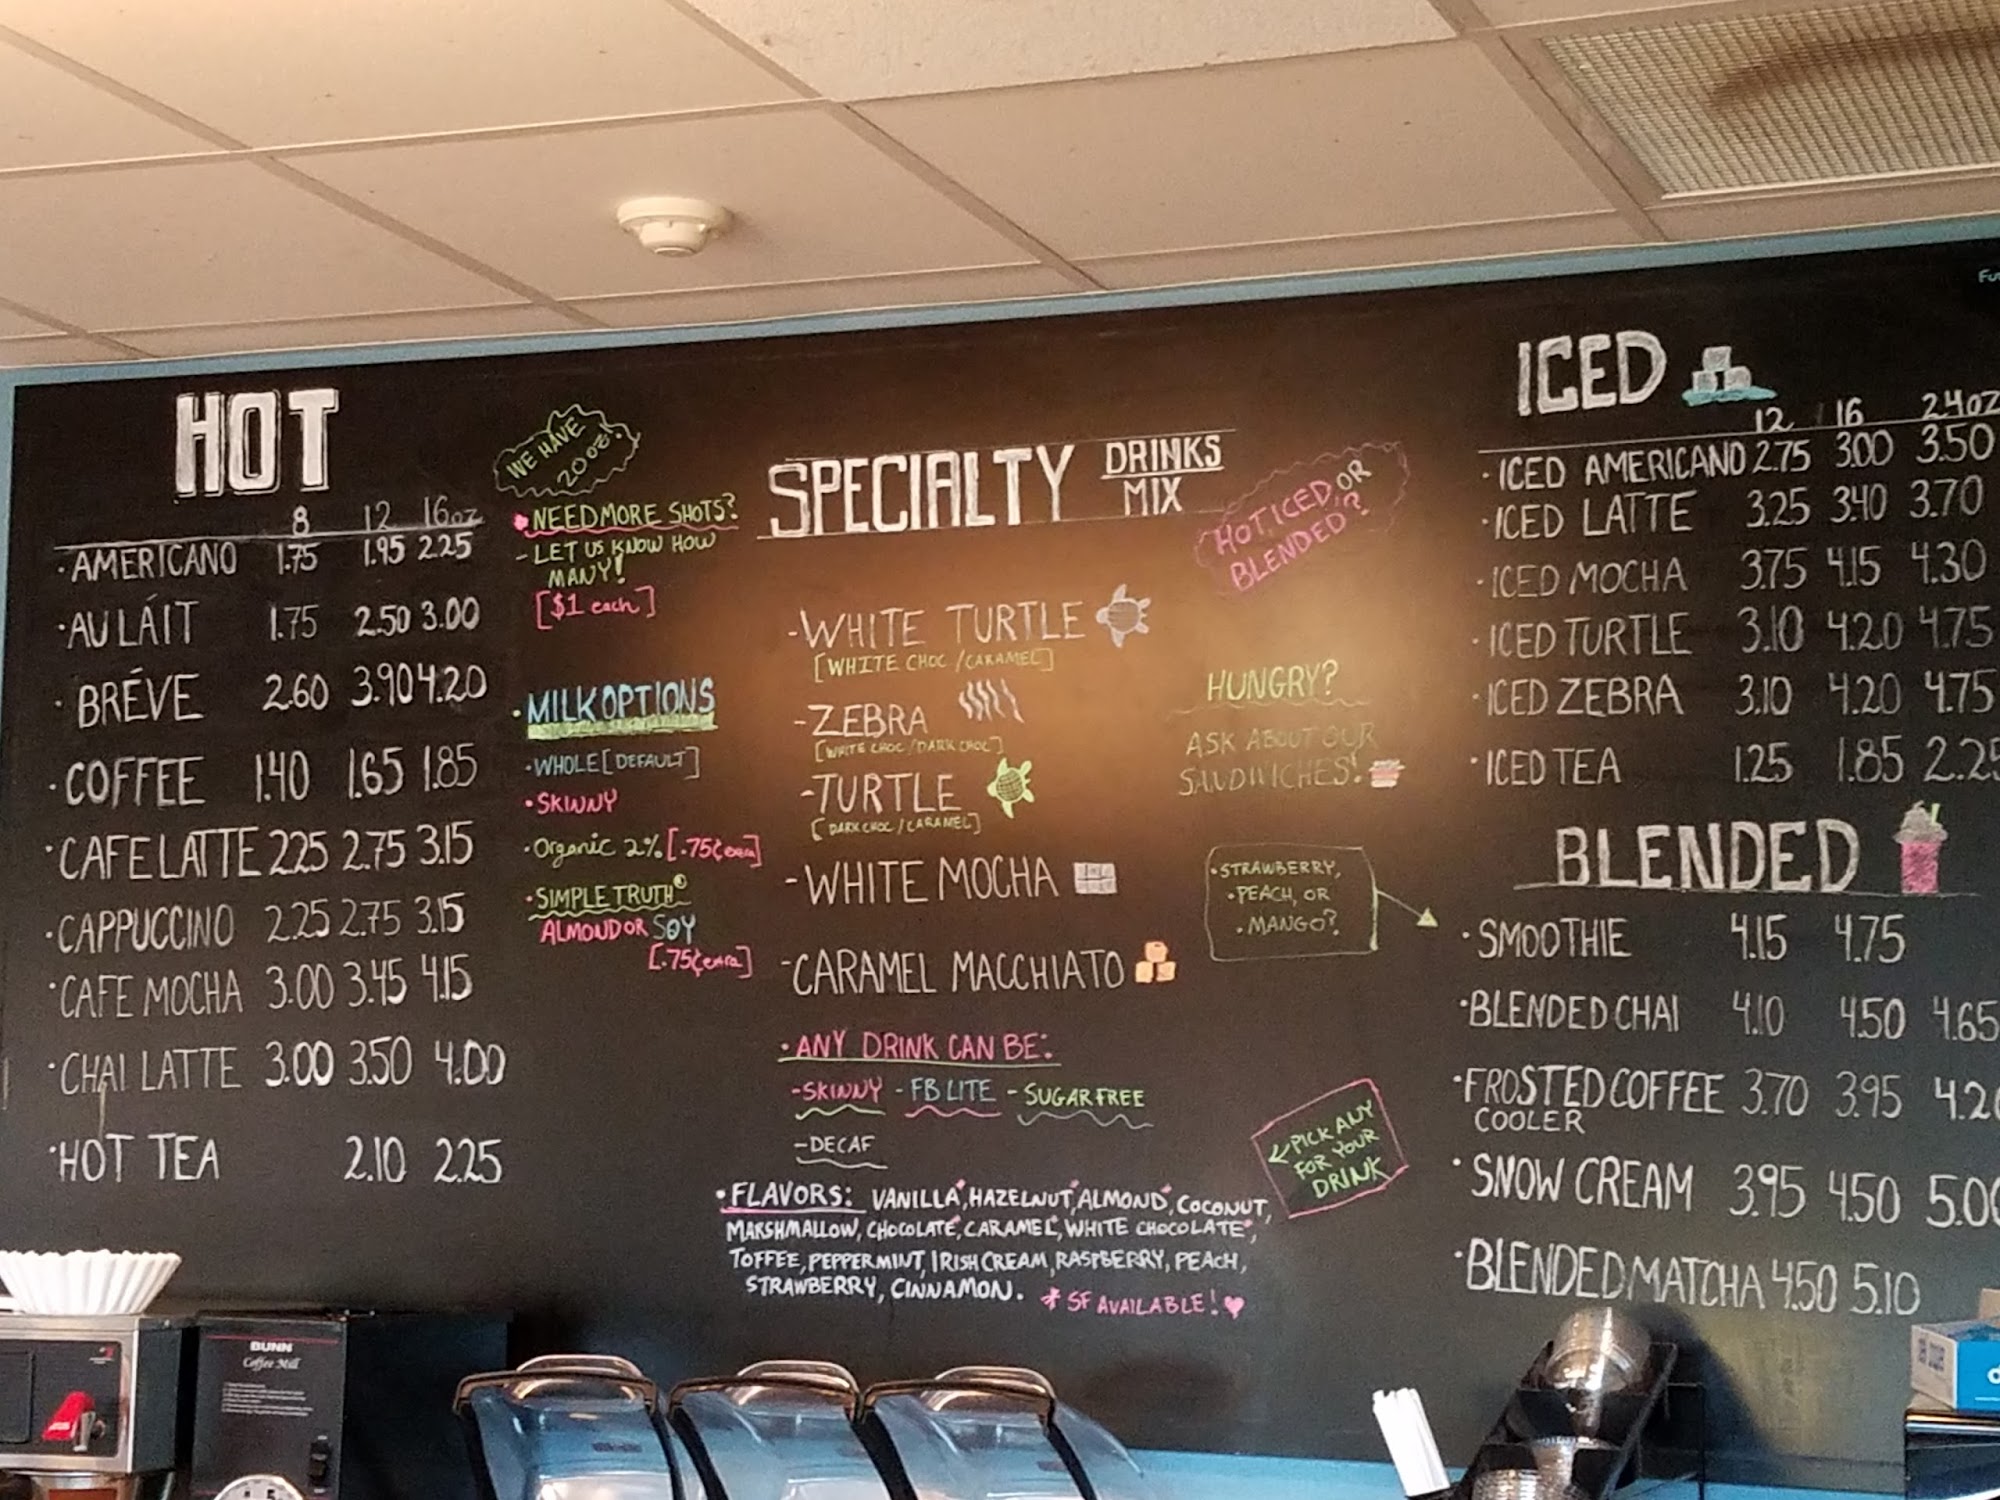 HOT
8 12 16oz
· AMERICANO 1.75 1.95 2.25
· AU LÁIT 1.75 2.50 3.00
· BRÉVE 2.60 3.90 4.20
· COFFEE 1.40 1.65 1.85
· CAFE LATTE 2.25 2.75 3.15
· CAPPUCCINO 2.25 2.75 3.15
· CAFE MOCHA 3.00 3.45 4.15
· CHAI LATTE 3.00 3.50 4.00
· HOT TEA 2.10 2.25
WE HAVE
20oz!
NEED MORE SHOTS?
- LET US KNOW HOW
MANY!
[$1 each]
· MILK OPTIONS
· WHOLE [DEFAULT]
· SKINNY
· Organic 2% [.75¢ extra]
· SIMPLE TRUTH
ALMOND OR SOY
[.75¢ extra]
SPECIALTY DRINKS
MIX
HOT, ICED, OR
BLENDED?
- WHITE TURTLE
[WHITE CHOC / CARAMEL]
- ZEBRA
[WHITE CHOC / DARK CHOC]
- TURTLE
[DARK CHOC / CARAMEL]
- WHITE MOCHA
- CARAMEL MACCHIATO
HUNGRY?
ASK ABOUT OUR
SANDWICHES!
· STRAWBERRY,
· PEACH, OR
· MANGO?
· ANY DRINK CAN BE:
- SKINNY - FB LITE - SUGAR FREE
- DECAF
PICK ANY
FOR YOUR
DRINK
· FLAVORS: VANILLA*, HAZELNUT*, ALMOND*, COCONUT,
MARSHMALLOW, CHOCOLATE*, CARAMEL*, WHITE CHOCOLATE*,
TOFFEE, PEPPERMINT, IRISH CREAM, RASPBERRY, PEACH,
STRAWBERRY, CINNAMON. * SF AVAILABLE! ♥
ICED
12 16 24oz
· ICED AMERICANO 2.75 3.00 3.50
· ICED LATTE 3.25 3.40 3.70
· ICED MOCHA 3.75 4.15 4.30
· ICED TURTLE 3.10 4.20 4.75
· ICED ZEBRA 3.10 4.20 4.75
· ICED TEA 1.25 1.85 2.25
BLENDED
· SMOOTHIE 4.15 4.75
· BLENDED CHAI 4.10 4.50 4.65
· FROSTED COFFEE 3.70 3.95 4.20
COOLER
· SNOW CREAM 3.95 4.50 5.00
· BLENDED MATCHA 4.50 5.10
BUNN
Coffee Mill